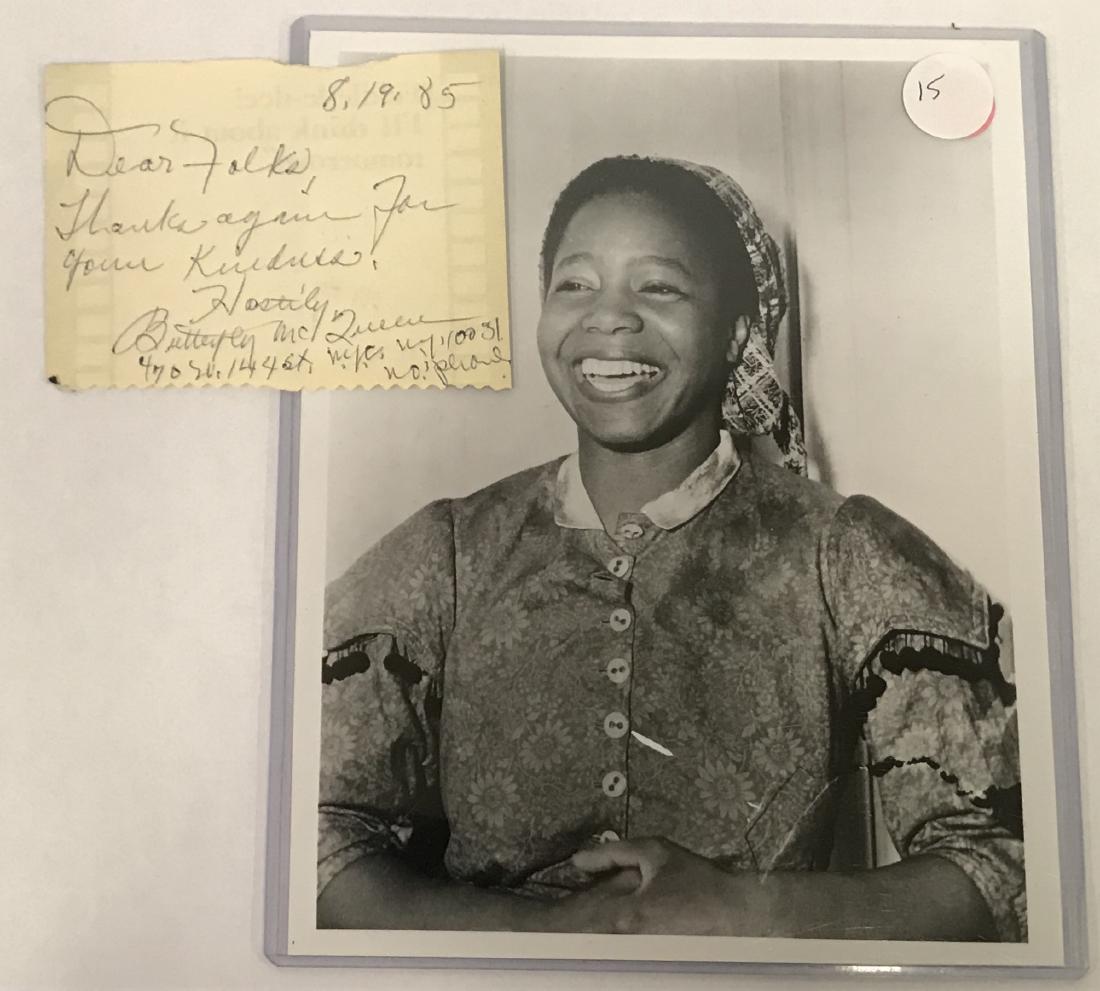 8.19.85
Dear Folks,
Thanks again for
your Kindness!
Hastily,
Butterfly McQueen
470 W. 144 St. N.Y.C N.Y. 10031
no phone!
15